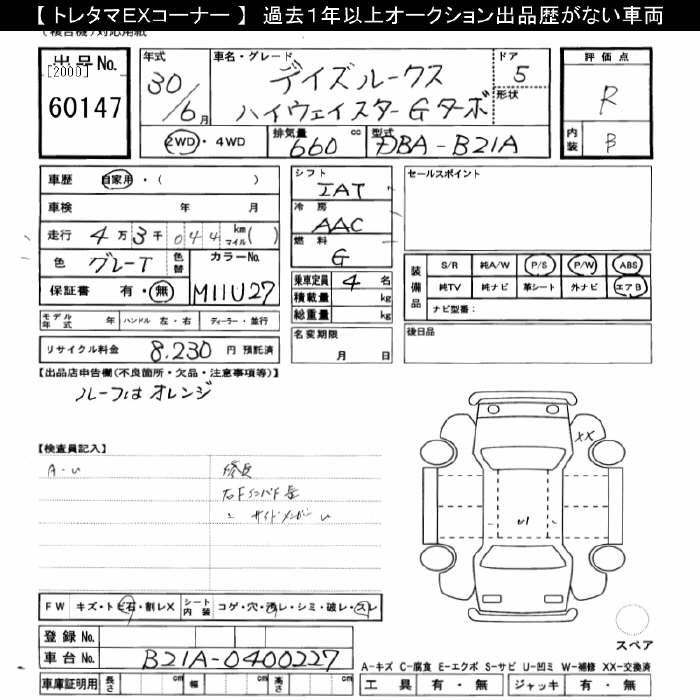 【 トレタマＥＸコーナー 】 過去１年以上オークション出品歴がない車両
出品No.
[2000]
60147
年式
30/6月
車名・グレード
デイズルークス
ハイウェイスターGターボ
ドア
5
形状
2WD・4WD
排気量
660 cc
型式
DBA-B21A
評価点
R
内装
B
車歴 自家用・( )
車検 年 月
走行 4万3千044 km マイル( )
色 グレーT 色替
カラーNo.
M11U27
保証書 有・無
シフト
IAT
冷房
AAC
燃料
G
乗車定員 4 名
積載量 kg
総重量 kg
セールスポイント
装備品
S/R 純A/W P/S P/W ABS
純TV 純ナビ 革シート 外ナビ エアB
ナビ型番：
モデル年式 年 ハンドル 左・右 ディーラー・並行
名変期限
月 日
後日品
リサイクル料金 8,230 円 預託済
【出品店申告欄(不良箇所・欠品・注意事項等)】
ルーフはオレンジ
【検査員記入】
A-U
修長
XX
U1
FW キズ・トビ石・割レX
シート内装 コゲ・穴・汚レ・シミ・破レ・スレ
登録No.
車台No. B21A-0400227
車庫証明用 長さ cm 幅 cm 高さ cm
スペア
A-キズ C-腐食 E-エクボ S-サビ U-凹ミ W-補修 XX-交換済
工具 有・無 ジャッキ 有・無